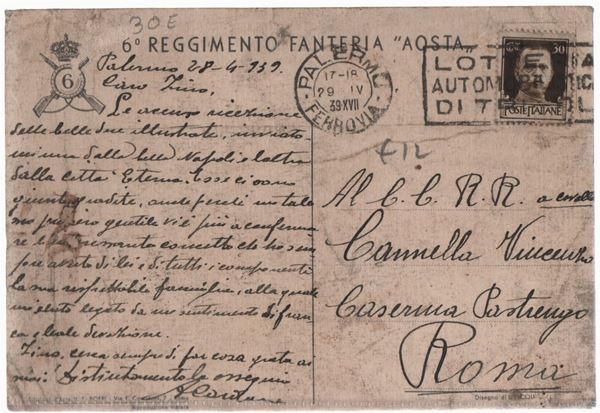 30E
6° REGGIMENTO FANTERIA "AOSTA"
6
Palermo 28-4-939.
Caro Zino,
Le accuso ricezione
delle belle due illustrate, inviate
mi una dalla bella Napoli e l'altra
dalla città Eterna. Esse ci sono
giunte gradite, anche perché un tale
mo pensiero gentile vi è più a conferma
re il concetto che ho sem
pre avuto di lei e di tutti i componenti
la sua rispettabile famiglia, alla quale
mi sento legato da un sentimento di fran
ca e leale devozione.
Zino, cerca sempre di far cosa grata ai
suoi. Distintamente la ossequio
PALERMO
17-18
29 IV
39 XVII
FERROVIA
LOT
AUTOM
DI T
30
POSTE ITALIANE
£12
Al C. C. R. R. a cavallo
Cannella Vincenzo
Caserma Pastrengo
Roma
Riproduzione vietata
Disegno di